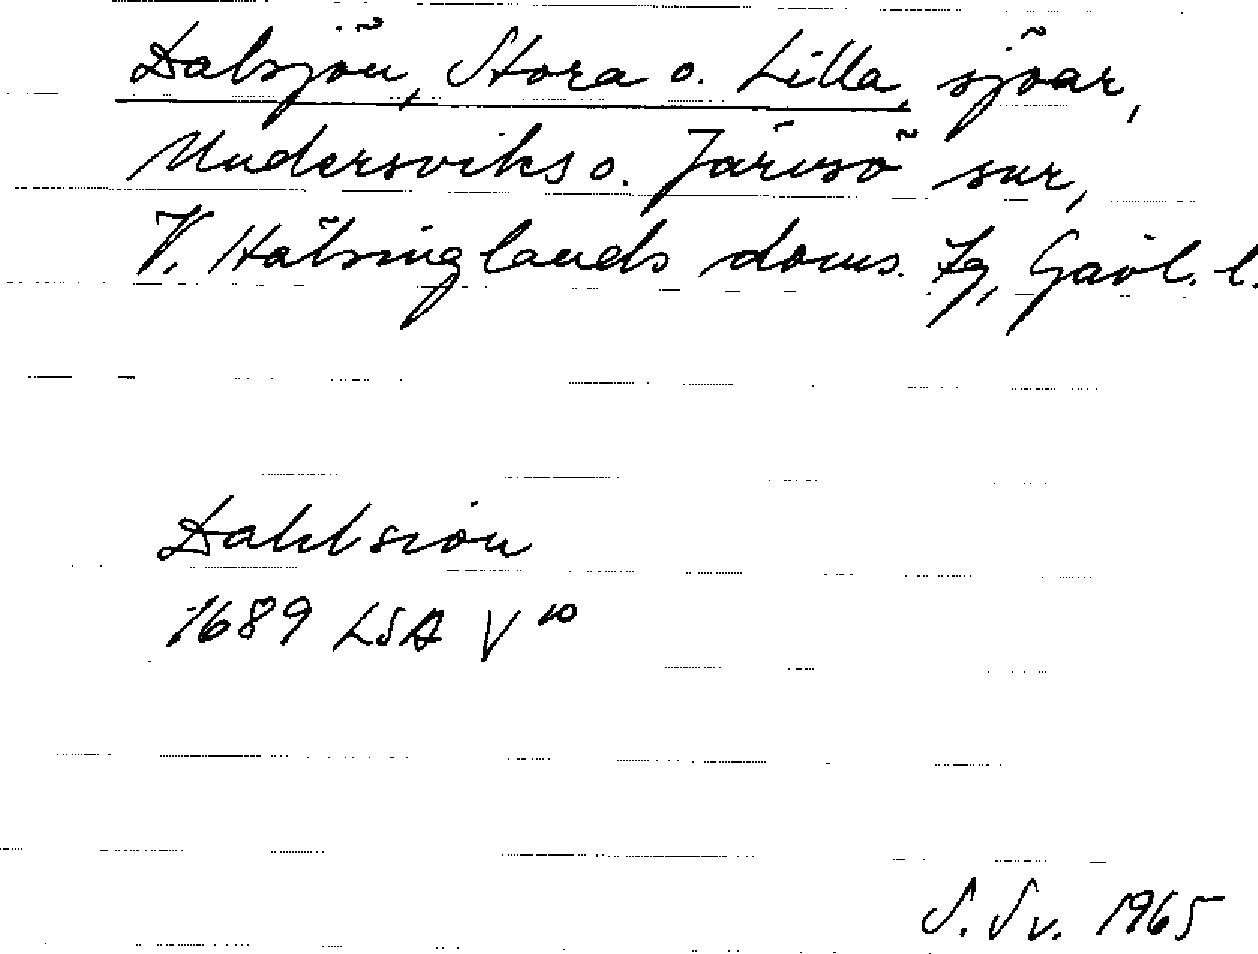 Dalsjön, Stora o. Lilla, sjöar,
Undersviks o. Järvsö snr,
V. Hälsinglands doms. lg, Gävl. l.
Dahlsiön
1689 LSA V 10
S. Sv. 1965